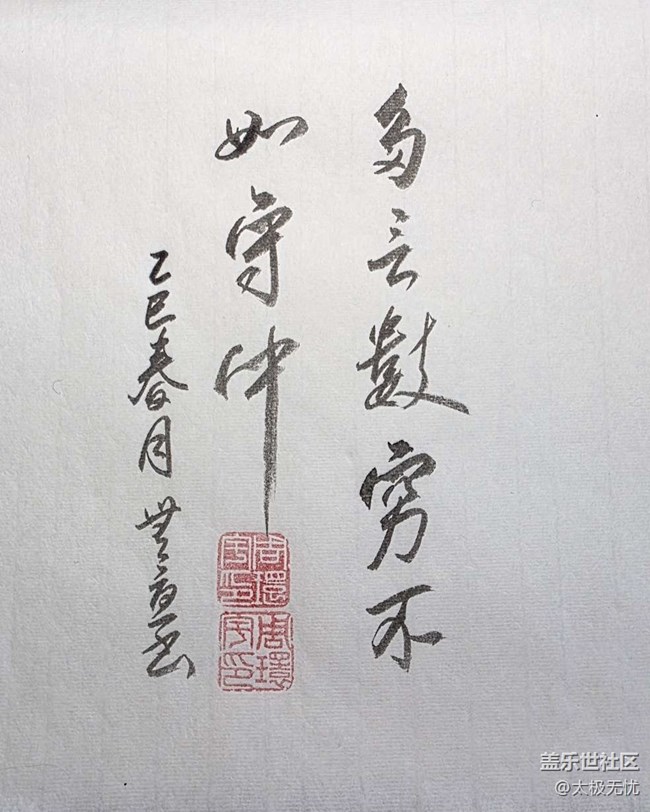 多言数穷不
如守仲
乙巳春月
盖乐世社区
@太极无忧